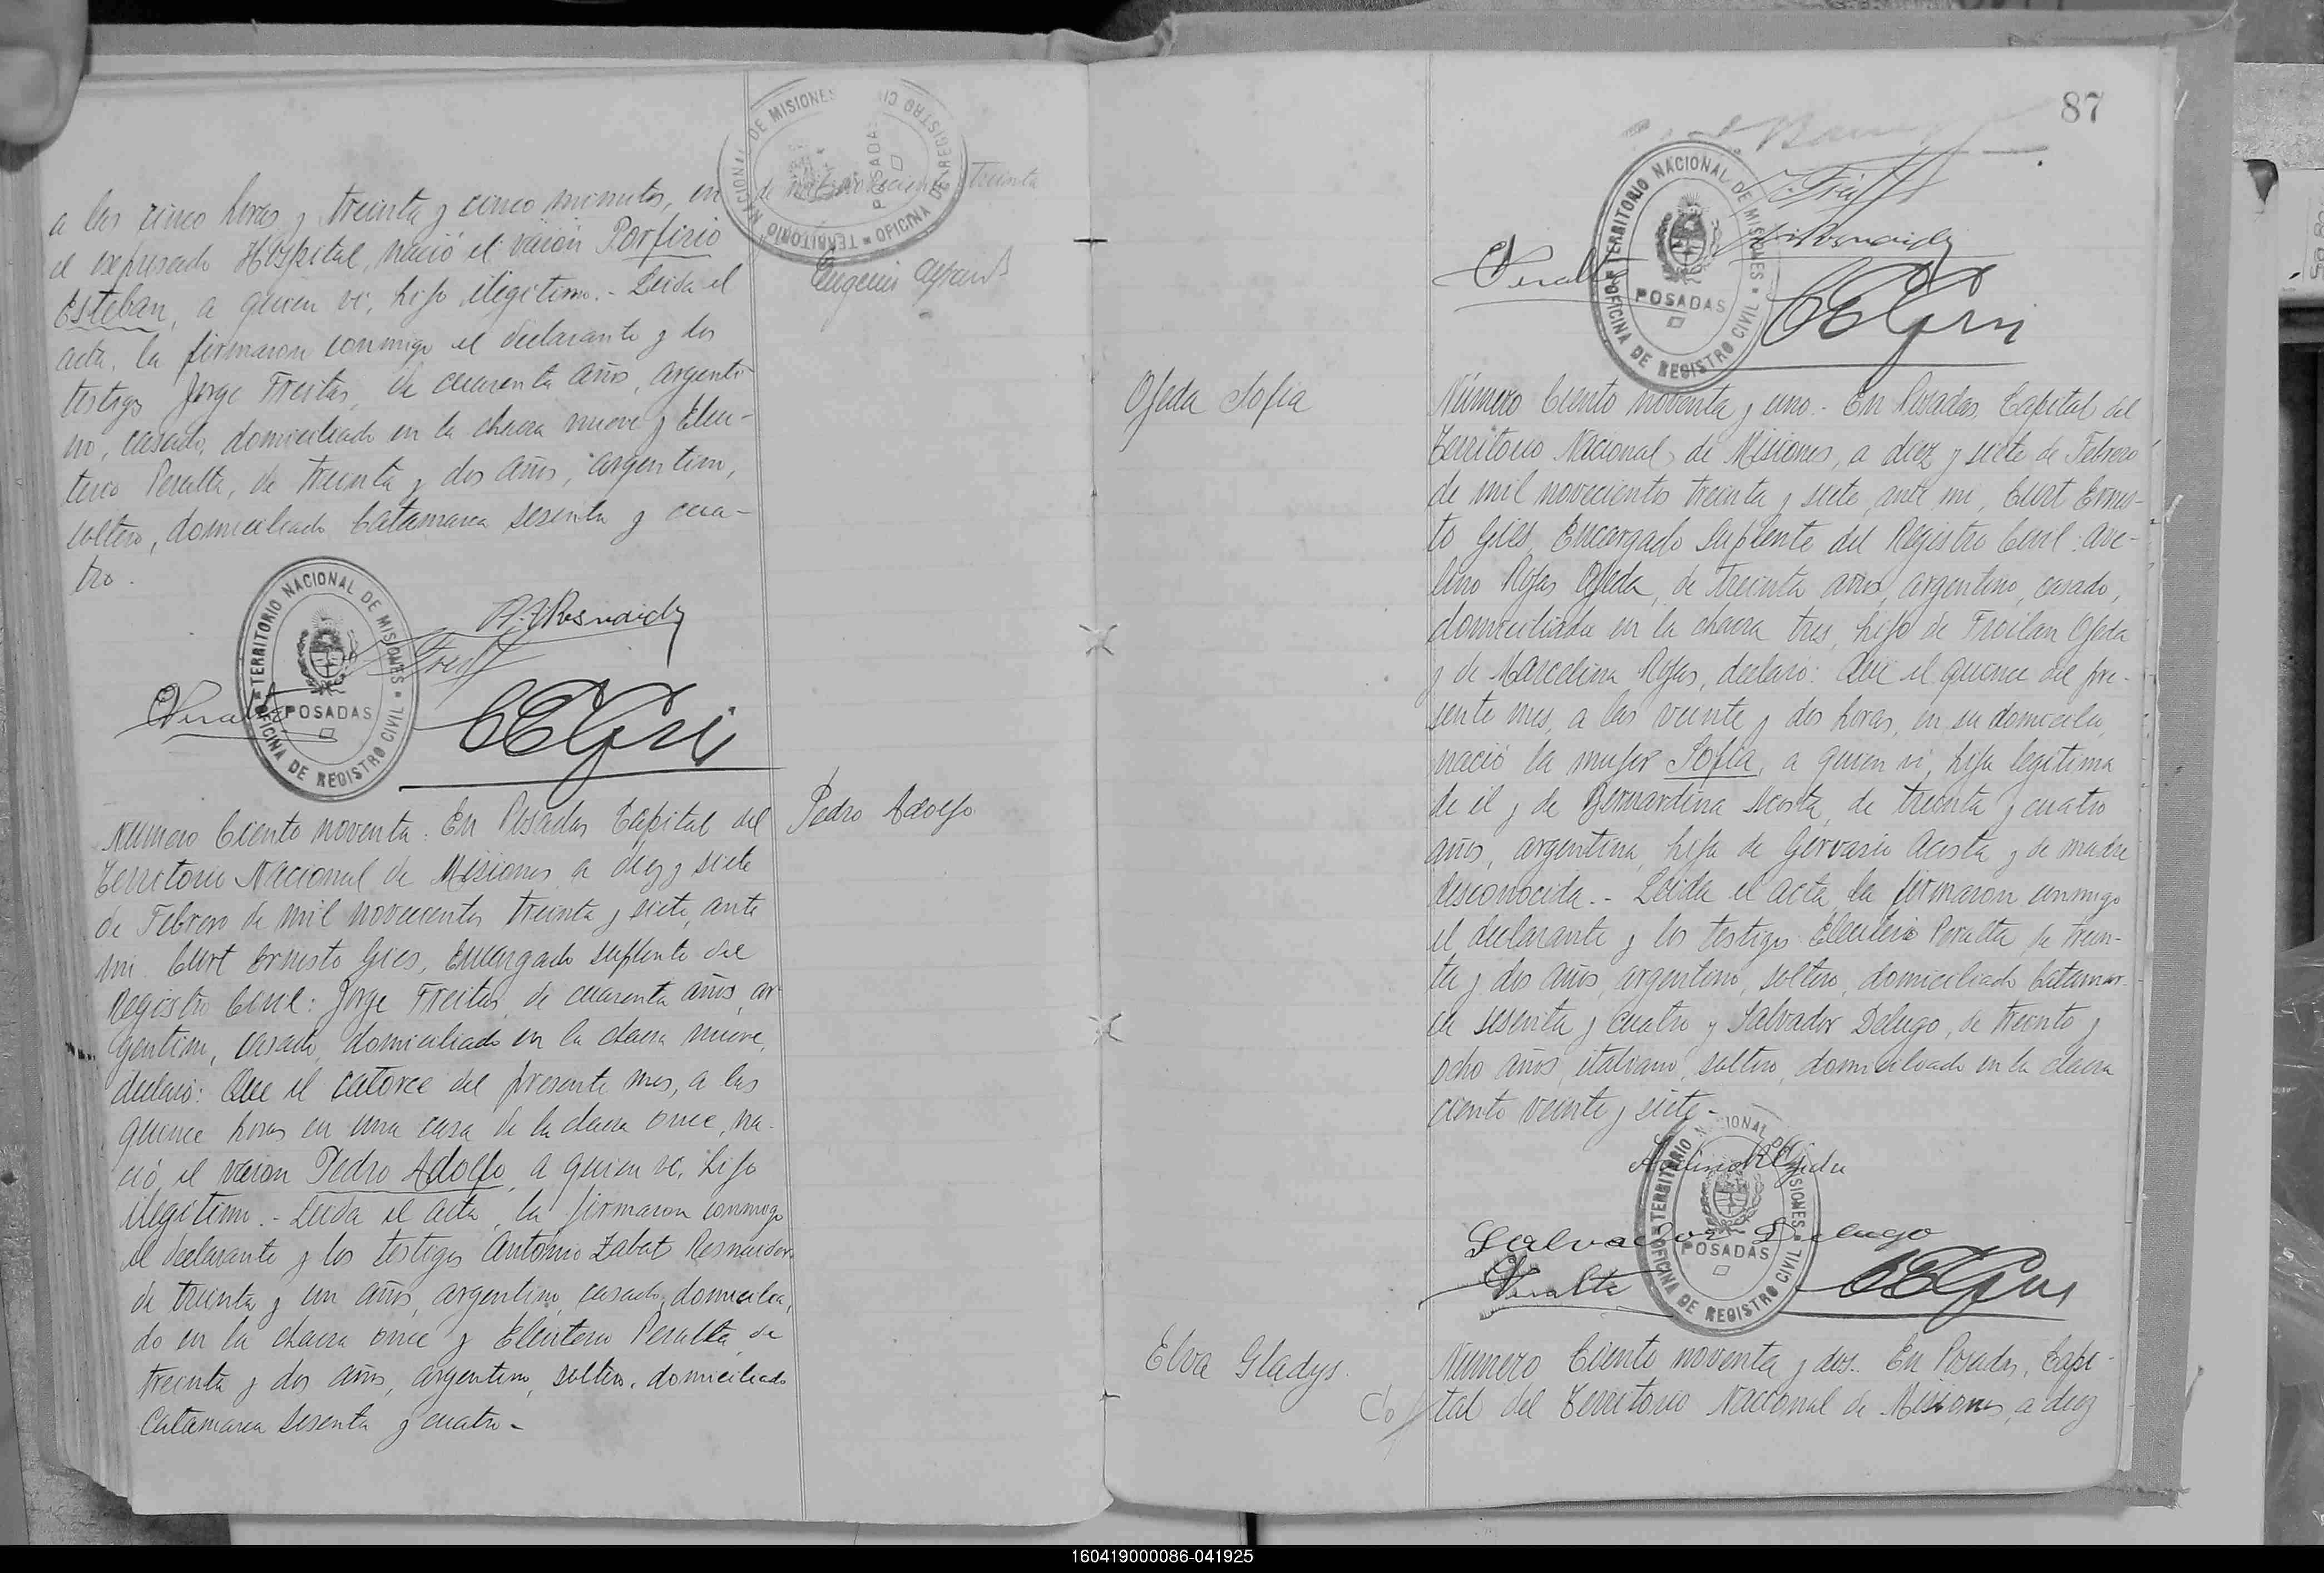 a las cinco horas y treinta y cinco minutos, en
el expresado Hospital, nació el varón Porfirio
Esteban, a quien ví, hijo ilegítimo.- Leida el
acta, la firmaron conmigo el declarante y los
testigos Jorge Freitas, de cuarenta años, argenti-
no, casado, domiciliado en la chacra nueve y Eleu-
terio Peralta, de treinta y dos años, argentino,
soltero, domiciliado Catamarca sesenta y cua-
tro.
TERRITORIO NACIONAL DE MISIONES
OFICINA DE REGISTRO CIVIL
POSADAS
treinta
Eugenio
TERRITORIO NACIONAL DE MISIONES
POSADAS
OFICINA DE REGISTRO CIVIL
Peralta
Pedro Adolfo.
Número Ciento noventa. En Posadas Capital del
Territorio Nacional de Misiones a diez y siete
de Febrero de mil novecientos treinta y siete, ante
mi Curt Ernesto Gies, Encargado suplente del
Registro Civil: Jorge Freitas, de cuarenta años, ar-
gentino, casado, domiciliado en la chacra nueve,
declaró: Que el catorce del presente mes, a las
quince horas en una casa de la chacra once, na-
ció el varon Pedro Adolfo, a quien ví, hijo
ilegítimo.- Leida el acta, la firmaron conmigo
el declarante y los testigos Antonio Zabat Resnaider
de treinta y un años, argentino, casado, domicilia-
do en la chacra once y Eleuterio Peralta, de
treinta y dos años, argentino, soltero, domiciliado
Catamarca sesenta y cuatro-
87
TERRITORIO NACIONAL DE MISIONES
POSADAS
OFICINA DE REGISTRO CIVIL
Peralta
Ojeda Sofia
Número Ciento noventa y uno.- En Posadas, Capital del
Territorio Nacional de Misiones, a diez y siete de Febrero
de mil novecientos treinta y siete, ante mi, Curt Ernes-
to Gies, Encargado Suplente del Registro Civil: Ave-
lino Rojas Ojeda, de treinta años, argentino, casado,
domiciliado en la chacra tres, hijo de Froilan Ojeda
y de Marcelina Rojas, declaró: Que el quince del pre-
sente mes, a las veinte y dos horas, en su domicilio,
nació la mujer Sofia, a quien ví, hija legítima
de él y de Bernardina Acosta, de treinta y cuatro
años, argentina, hija de Gervasio Acosta y de madre
desconocida.- Leida el acta, la firmaron conmigo
el declarante y los testigos Eleuterio Peralta, de trein-
ta y dos años, argentino, soltero, domiciliado Catamar-
ca sesenta y cuatro y Salvador Delugo, de treinta y
ocho años, italiano, soltero, domiciliado en la chacra
ciento veinte y siete-
TERRITORIO NACIONAL DE MISIONES
Avelino R Ojeda
Salvador Delugo
POSADAS
Peralta
OFICINA DE REGISTRO CIVIL
Elva Gladys.
Número Ciento noventa y dos.. En Posadas, Capi-
tal del Territorio Nacional de Misiones, a diez
160419000086-041925